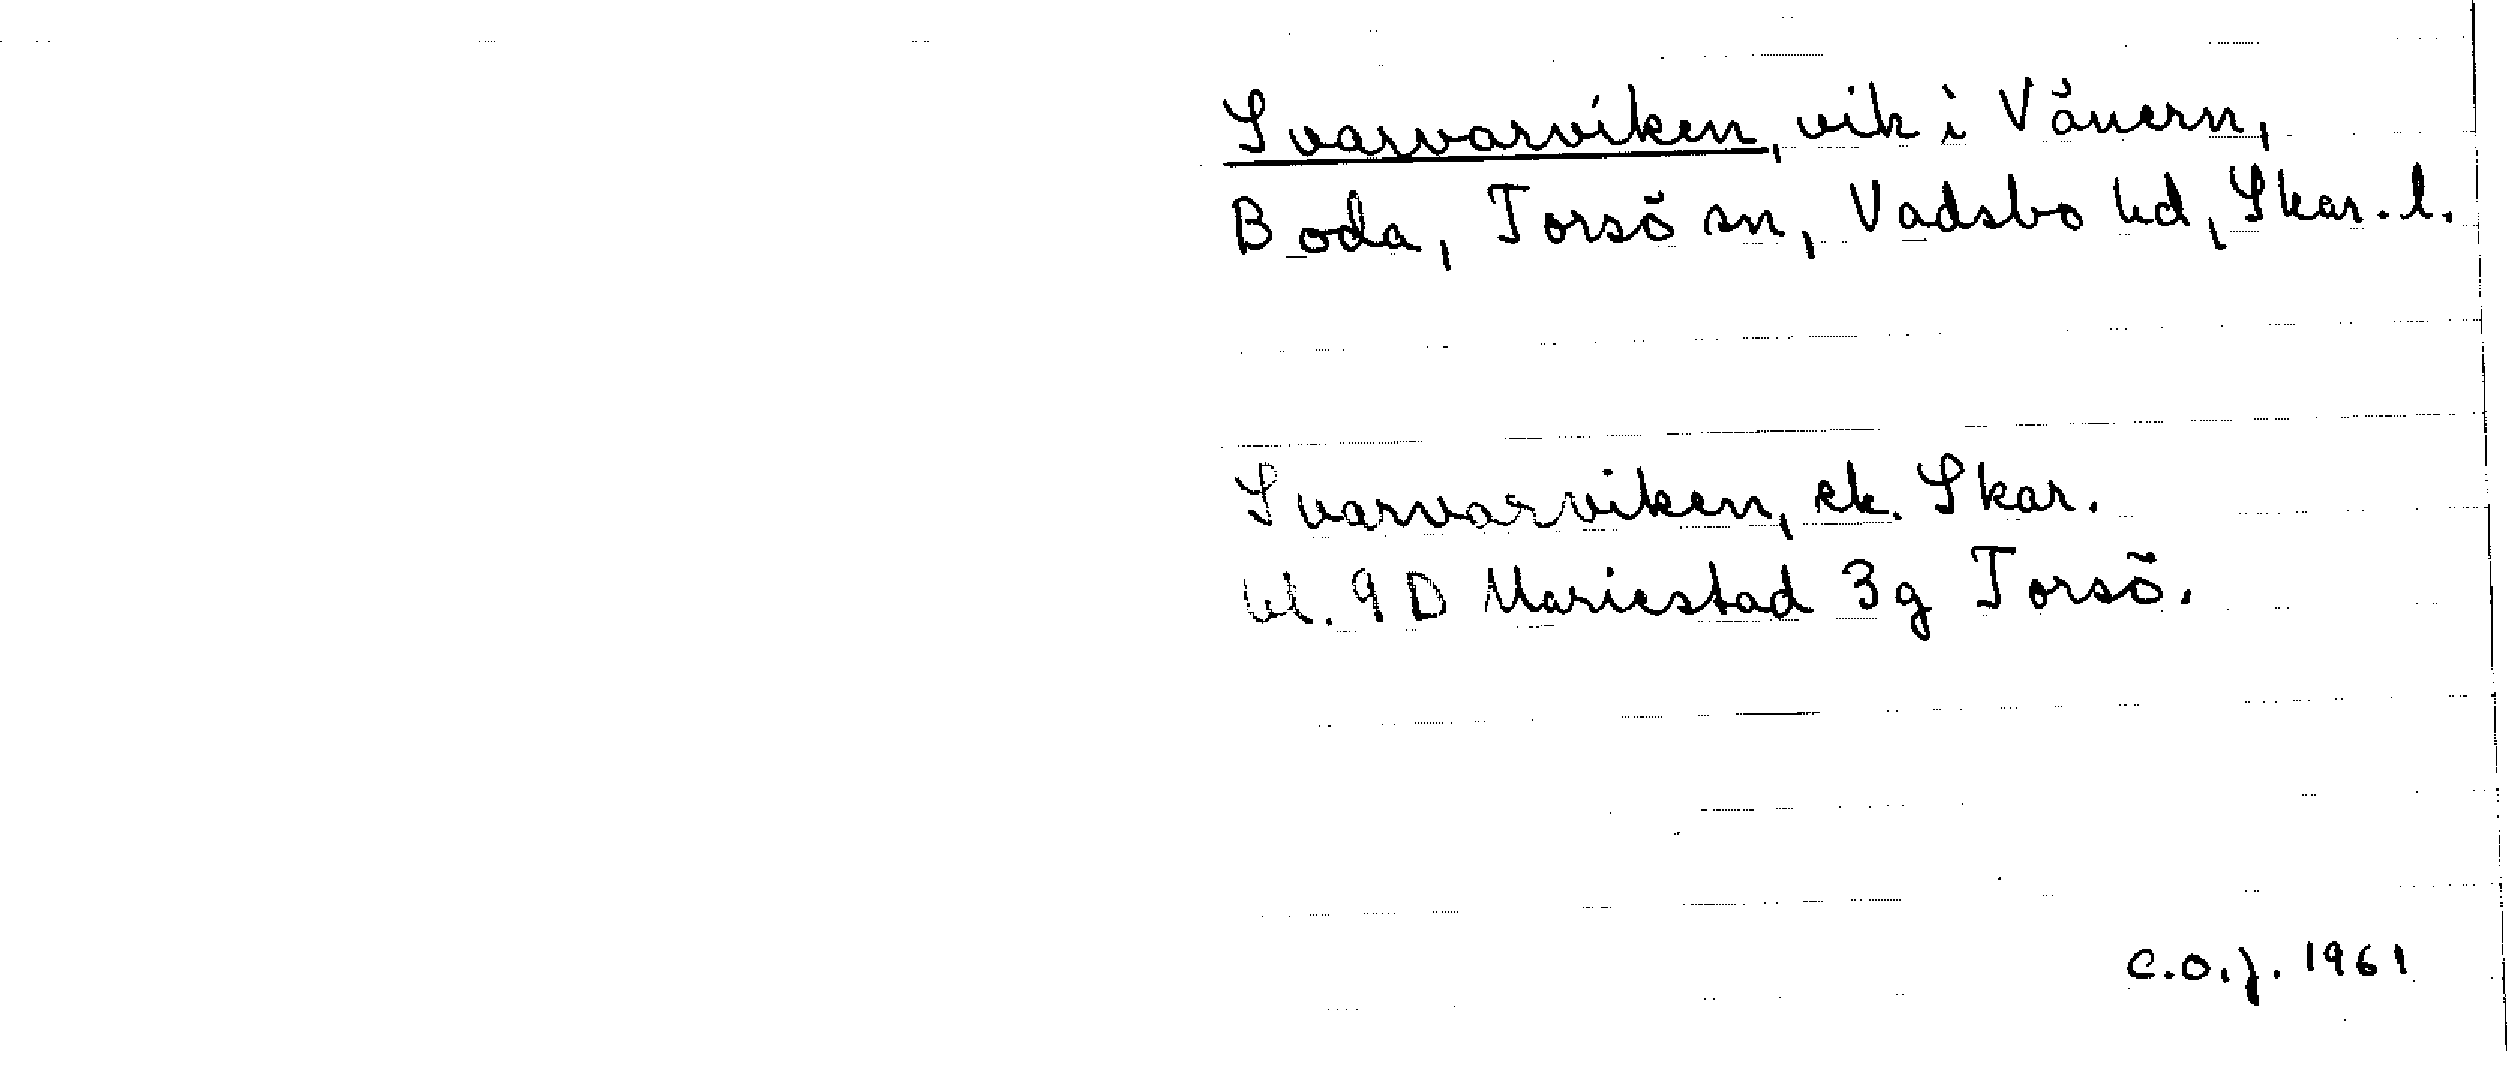 Svarvarviken, vik i Vänern,
Boda, Torsö sn, Vadsbo hd, Skar. l.
Svarvarviken, ek. Skar.
bl. 9D Mariestad 3g Torsö.
C.O.J. 1961